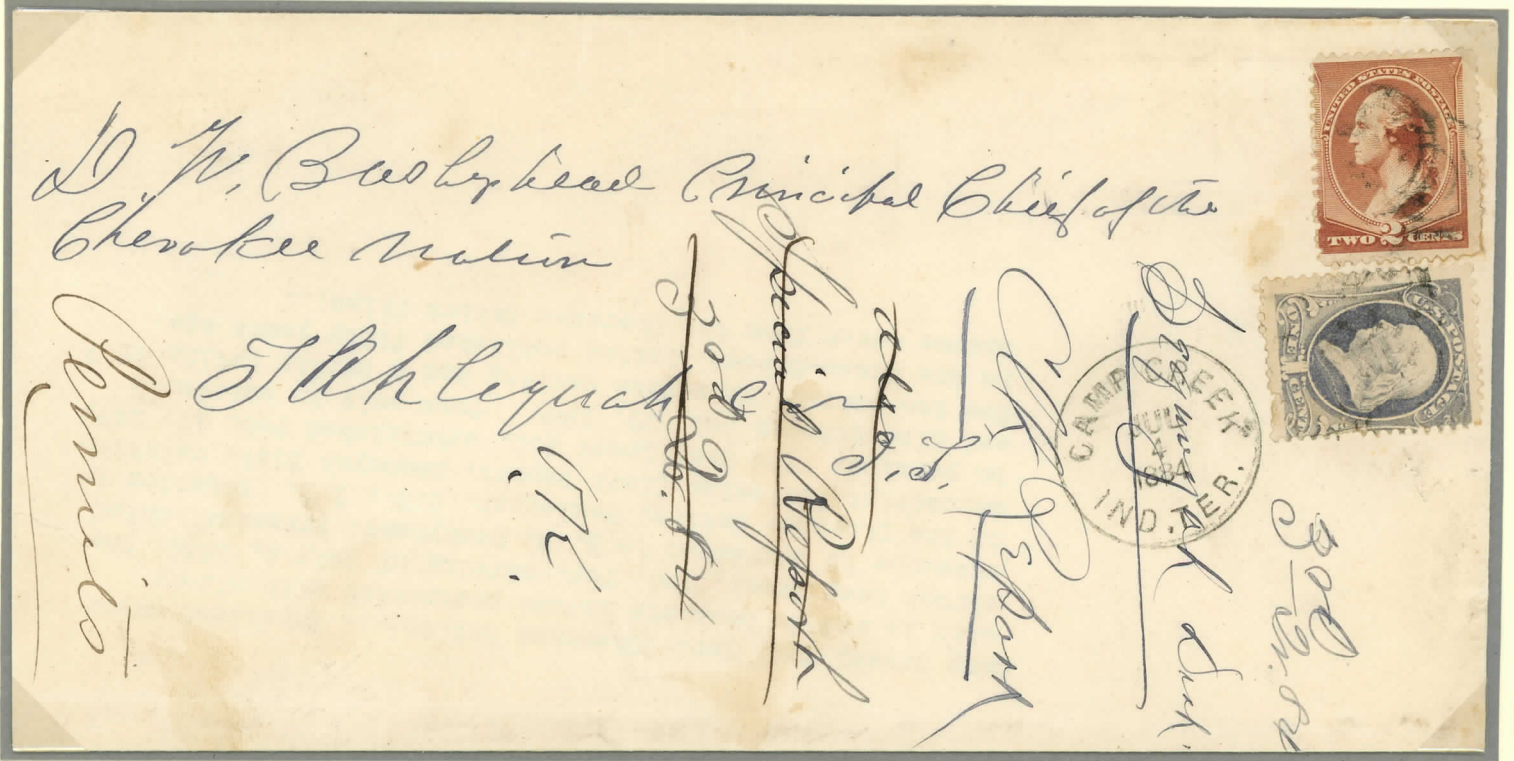 D W. Bushyhead Principal Chief of the
Cherokee Nation
Tahlequah
I.T.
Permits
O.K.
3od Qr. 84
Special Report
also
Clk Report
Sequoyah Dist.
3od
Qr. 84
CAMP CREEK
JUL
4
1884
IND. TER.
UNITED STATES POSTAGE
TWO 2 CENTS
U.S. POSTAGE
ONE 1 CENT